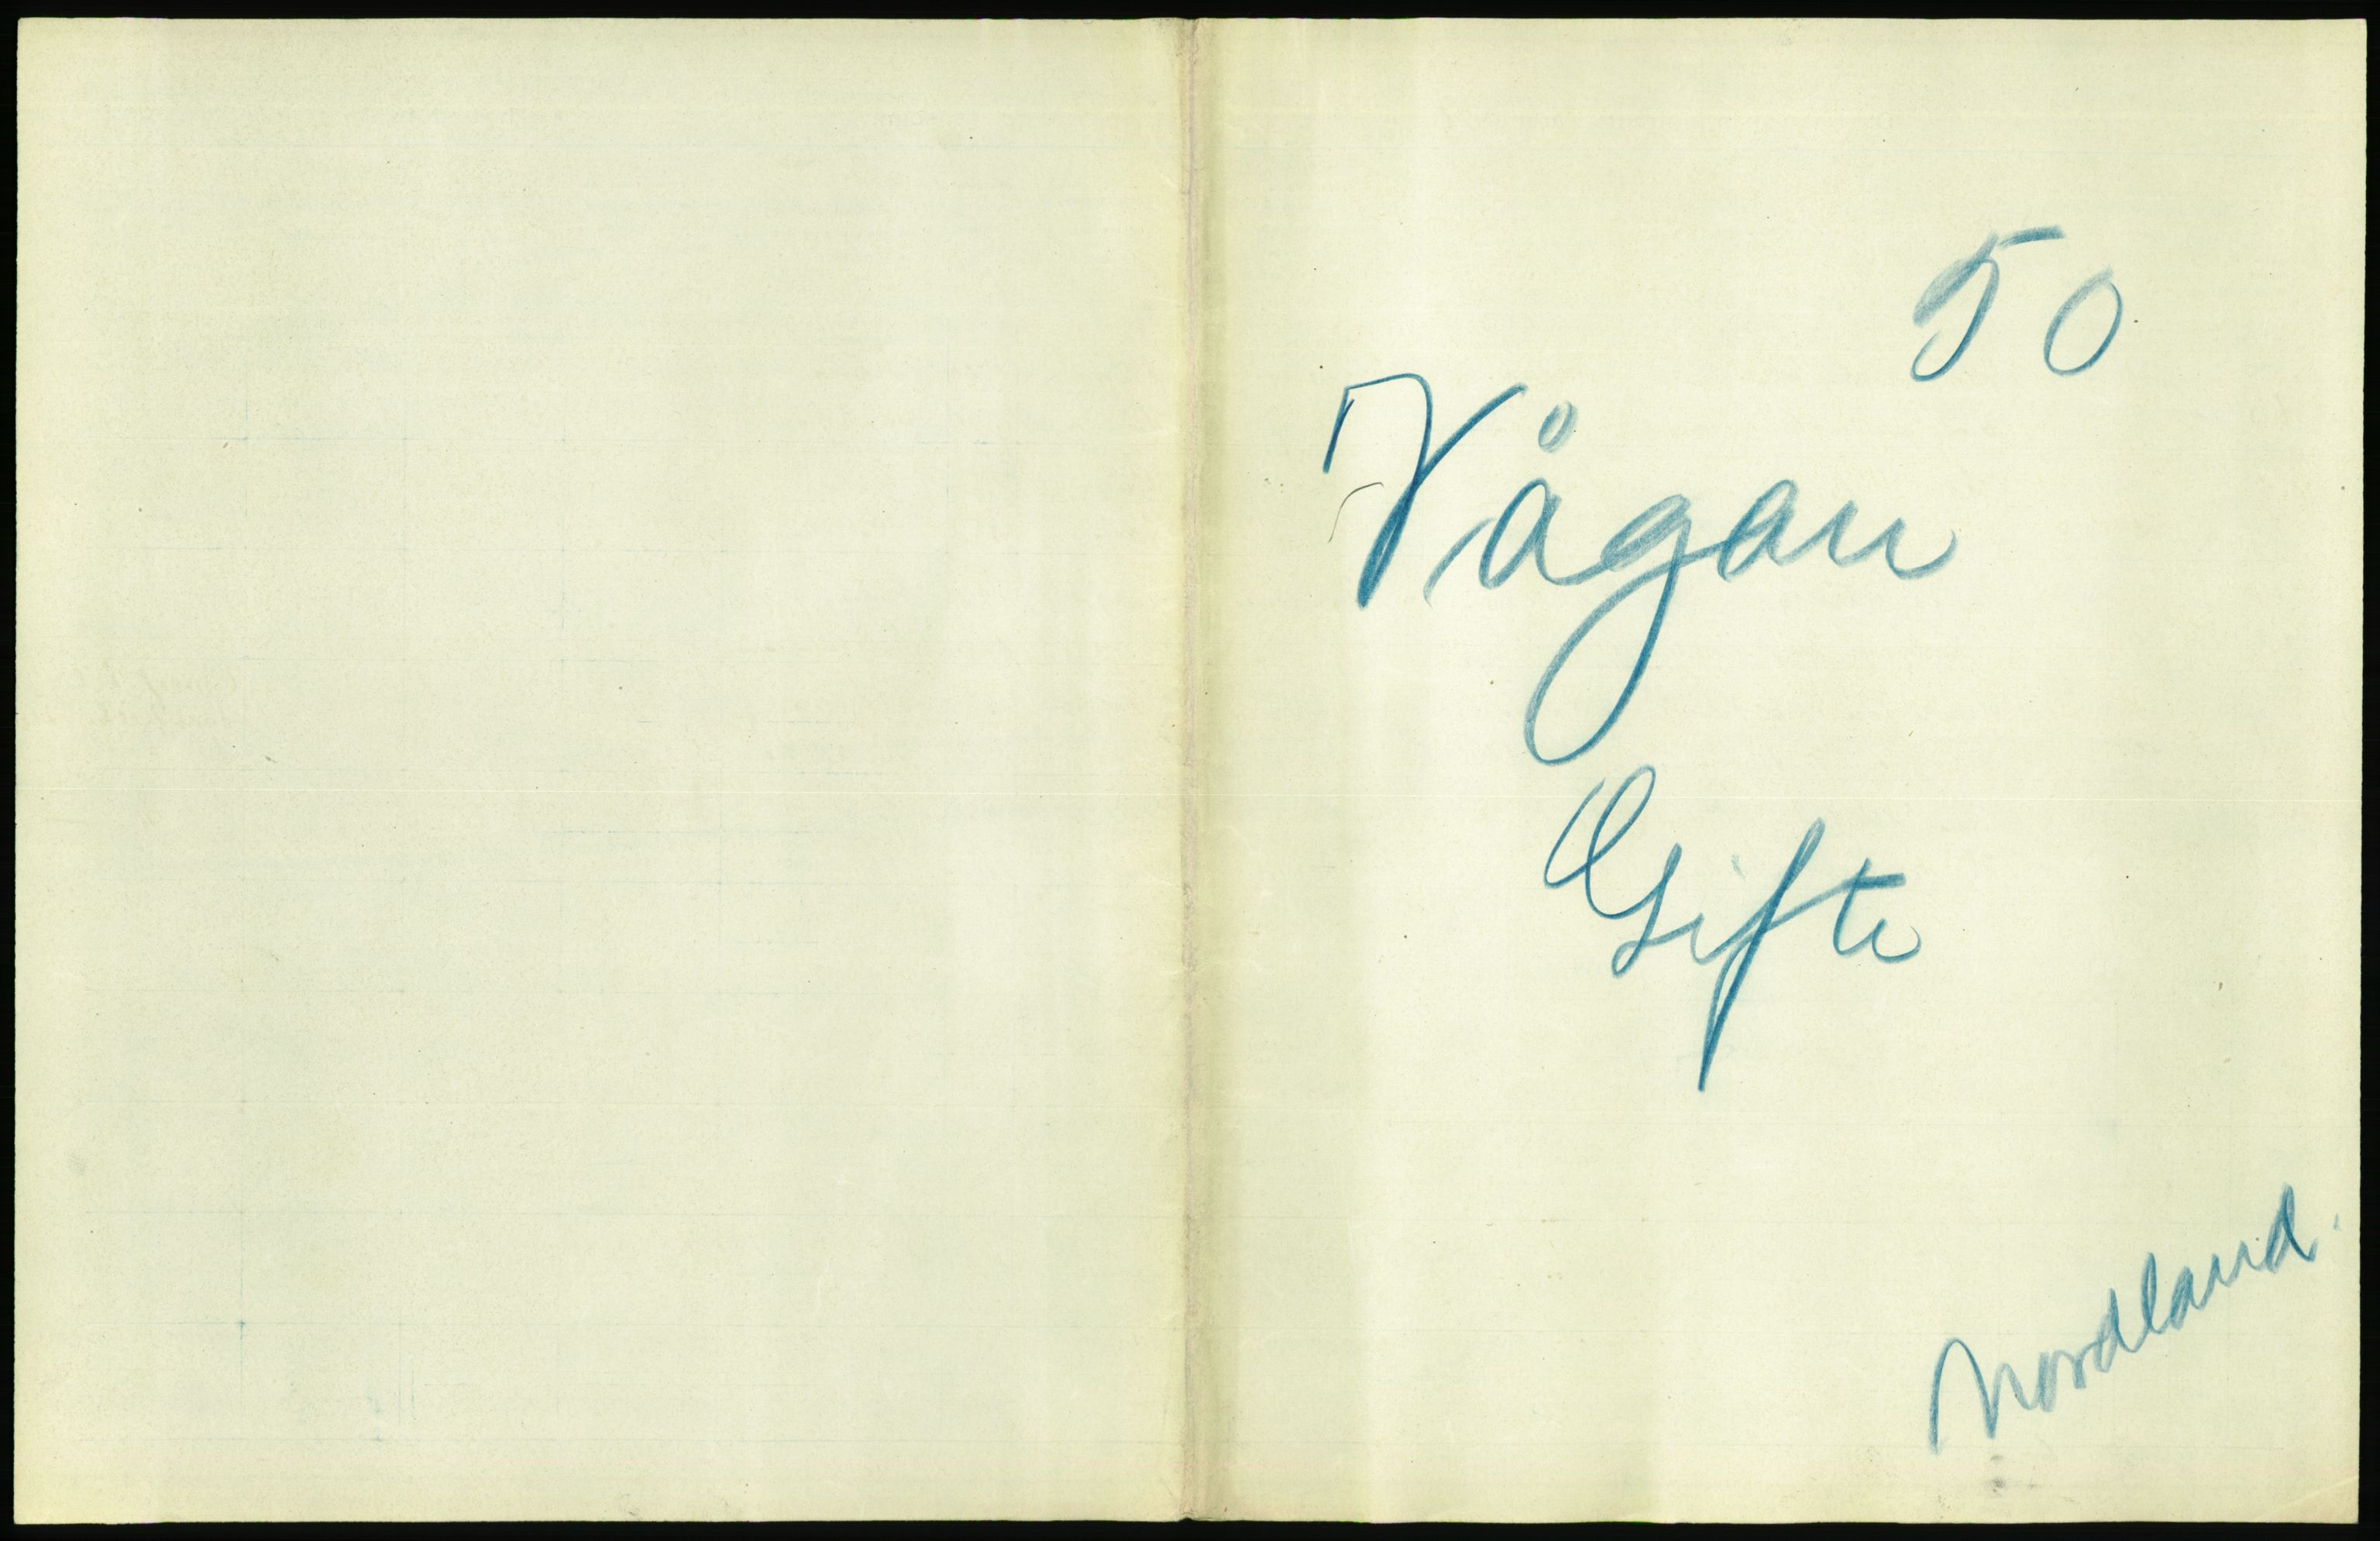 50
Vågan
Gifte
Nordland.